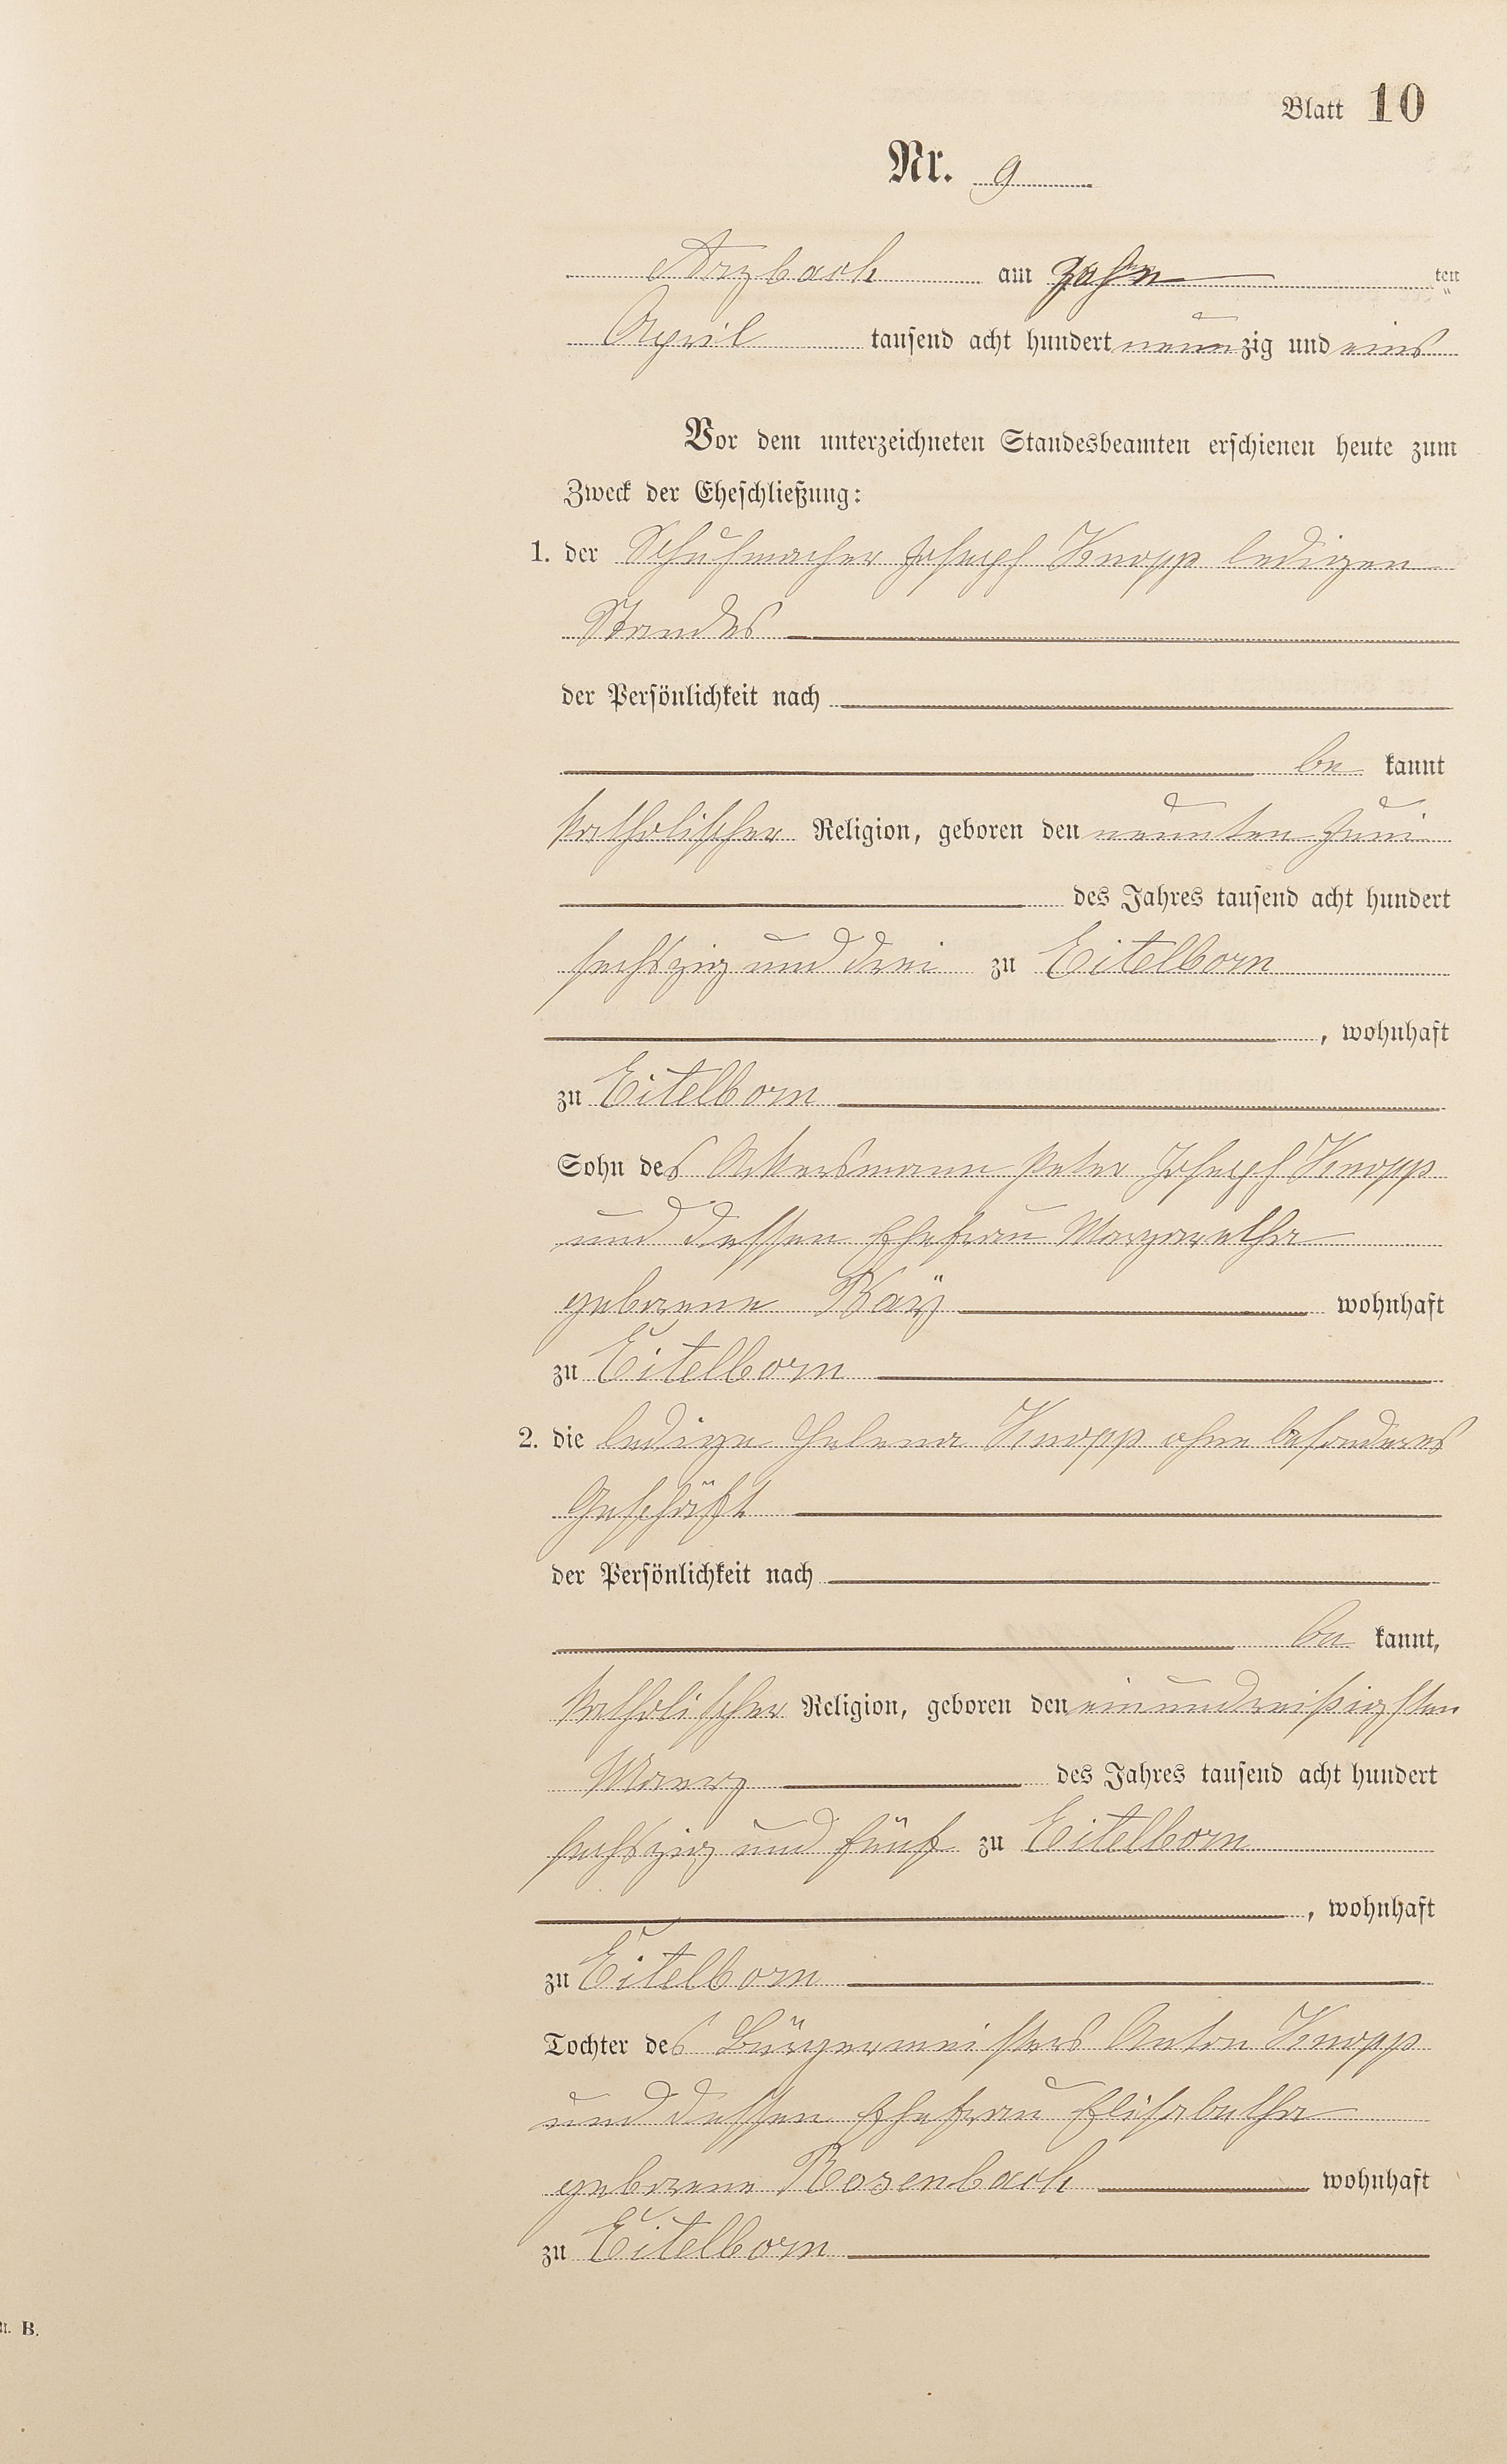 Blatt 10
Nr. 9
Arzbach am zehn ten
April tausend acht hundert neunzig und eins
Vor dem unterzeichneten Standesbeamten erschienen heute zum
Zweck der Eheschließung:
1. der Schuhmacher Joseph Knopp ledigen
Standes
der Persönlichkeit nach
be kannt
katholischer Religion, geboren den neunten Juni
des Jahres tausend acht hundert
sechszig und drei zu Eitelborn
, wohnhaft
zu Eitelborn
Sohn des Ackersmann Peter Joseph Knopp
und dessen Ehefrau Margaretha
geborene Kaÿ wohnhaft
zu Eitelborn
2. die ledige Helena Knopp ohne besonderes
Geschäft
der Persönlichkeit nach
be kannt,
katholischer Religion, geboren den einunddreißigsten
Maerz des Jahres tausend acht hundert
sechszig und fünf zu Eitelborn
, wohnhaft
zu Eitelborn
Tochter des Bürgermeisters Anton Knopp
und dessen Ehefrau Elisabetha
geborene Rosenbach wohnhaft
zu Eitelborn
B.